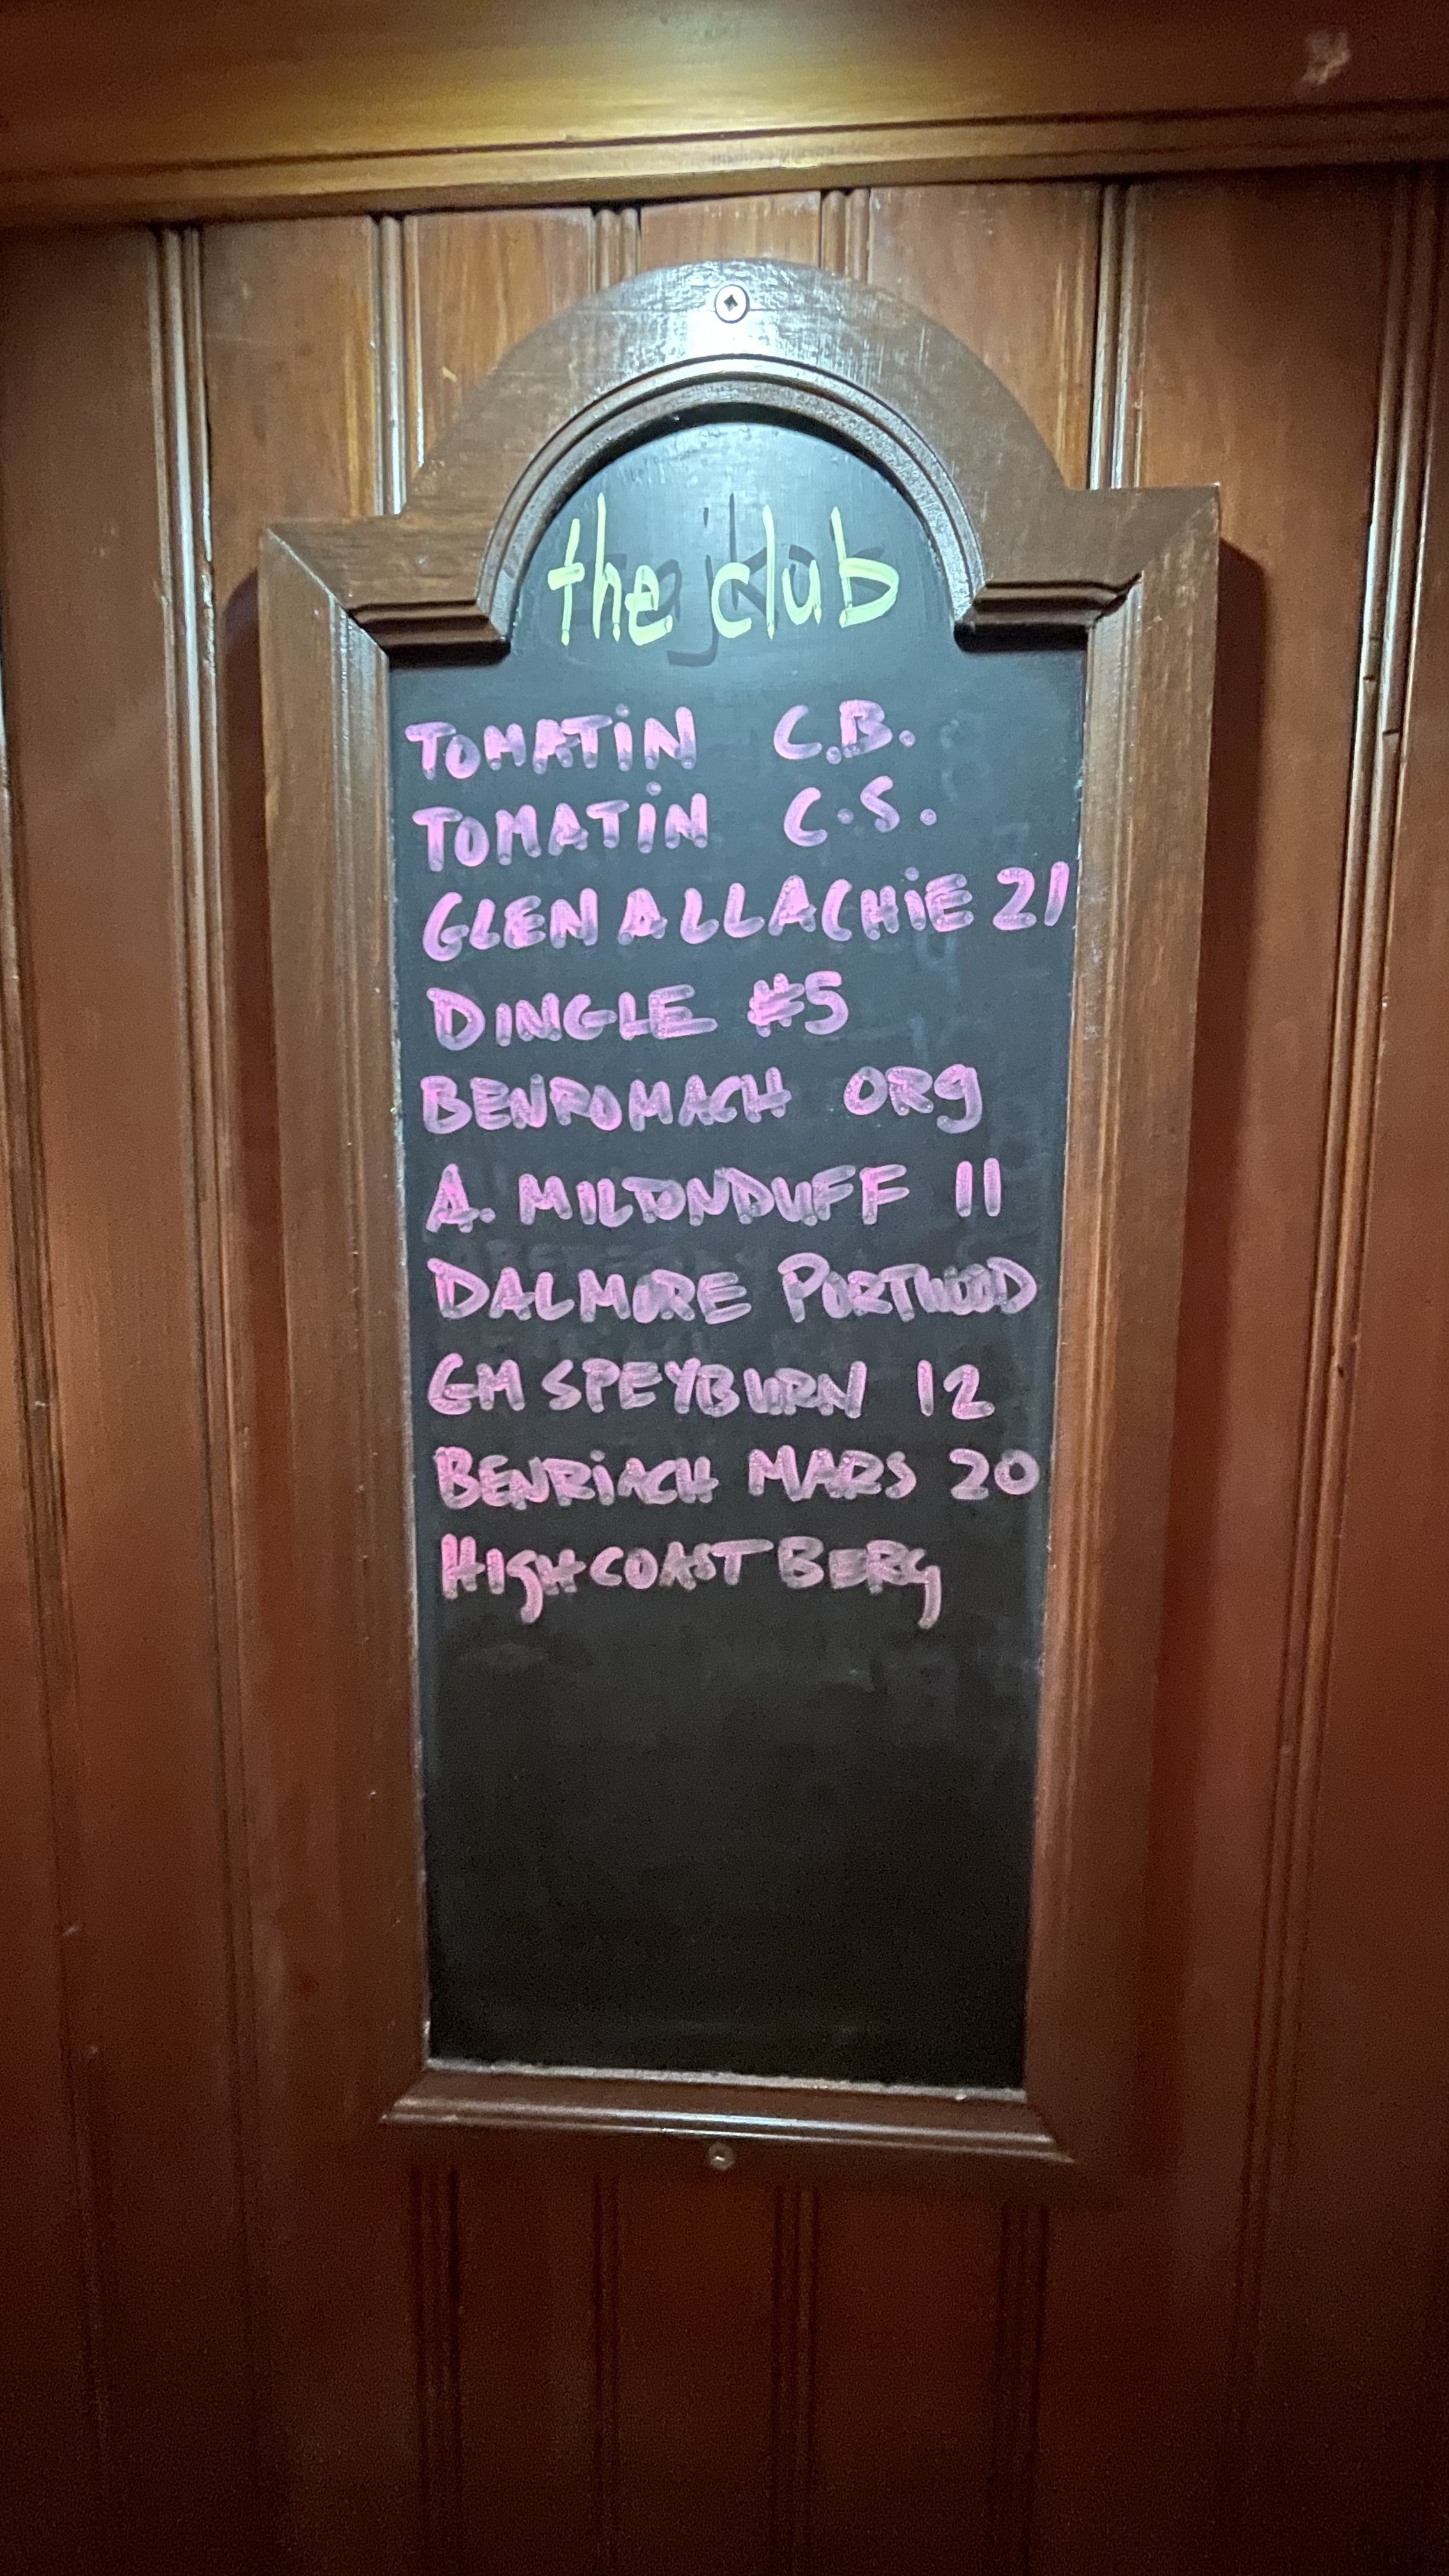 the club
TOMATIN C.B.
TOMATIN C.S.
GLENALLACHIE 21
DINGLE #5
BENROMACH ORG
A. MILTONDUFF 11
DALMORE PORTWOOD
GM SPEYBURN 12
BENRIACH MARS 20
HIGHCOAST BERG